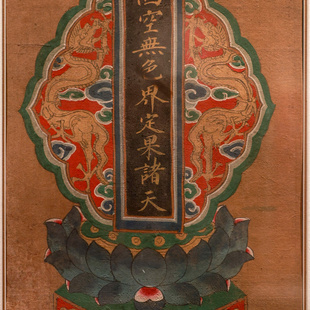 四空無色界定果諸天